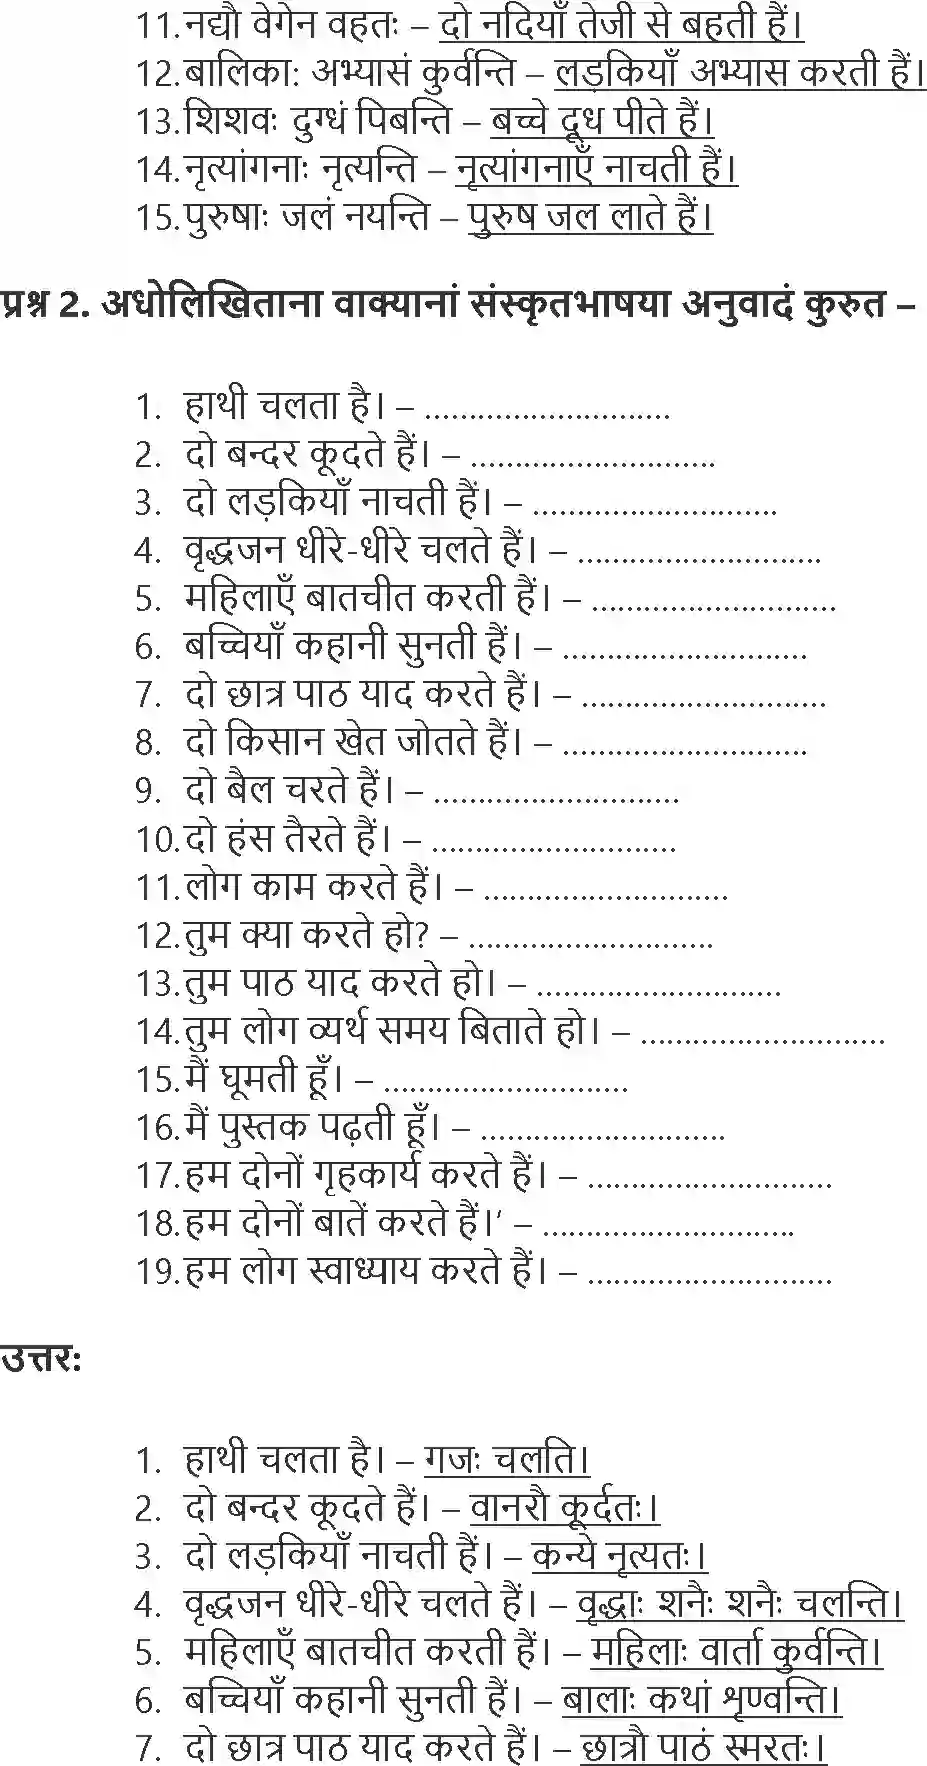 11. नद्यौ वेगेन वहतः – दो नदियाँ तेजी से बहती हैं।
12. बालिका: अभ्यासं कुर्वन्ति – लड़कियाँ अभ्यास करती हैं।
13. शिशवः दुग्धं पिबन्ति – बच्चे दूध पीते हैं।
14. नृत्यांगनाः नृत्यन्ति – नृत्यांगनाएँ नाचती हैं।
15. पुरुषाः जलं नयन्ति – पुरुष जल लाते हैं।
प्रश्न 2. अधोलिखिताना वाक्यानां संस्कृतभाषया अनुवादं कुरुत –
1. हाथी चलता है। – ...........................
2. दो बन्दर कूदते हैं। – ...........................
3. दो लड़कियाँ नाचती हैं। – ...........................
4. वृद्धजन धीरे-धीरे चलते हैं। – ...........................
5. महिलाएँ बातचीत करती हैं। – ...........................
6. बच्चियाँ कहानी सुनती हैं। – ...........................
7. दो छात्र पाठ याद करते हैं। – ...........................
8. दो किसान खेत जोतते हैं। – ...........................
9. दो बैल चरते हैं। – ...........................
10. दो हंस तैरते हैं। – ...........................
11. लोग काम करते हैं। – ...........................
12. तुम क्या करते हो? – ...........................
13. तुम पाठ याद करते हो। – ...........................
14. तुम लोग व्यर्थ समय बिताते हो। – ...........................
15. मैं घूमती हूँ। – ...........................
16. मैं पुस्तक पढ़ती हूँ। – ...........................
17. हम दोनों गृहकार्य करते हैं। – ...........................
18. हम दोनों बातें करते हैं।’ – ............................
19. हम लोग स्वाध्याय करते हैं। – ...........................
उत्तर:
1. हाथी चलता है। – गजः चलति।
2. दो बन्दर कूदते हैं। – वानरौ कूर्दतः।
3. दो लड़कियाँ नाचती हैं। – कन्ये नृत्यतः।
4. वृद्धजन धीरे-धीरे चलते हैं। – वृद्धाः शनैः शनैः चलन्ति।
5. महिलाएँ बातचीत करती हैं। – महिलाः वार्ता कुर्वन्ति।
6. बच्चियाँ कहानी सुनती हैं। – बालाः कथां श्रृण्वन्ति।
7. दो छात्र पाठ याद करते हैं। – छात्रौ पाठं स्मरतः।